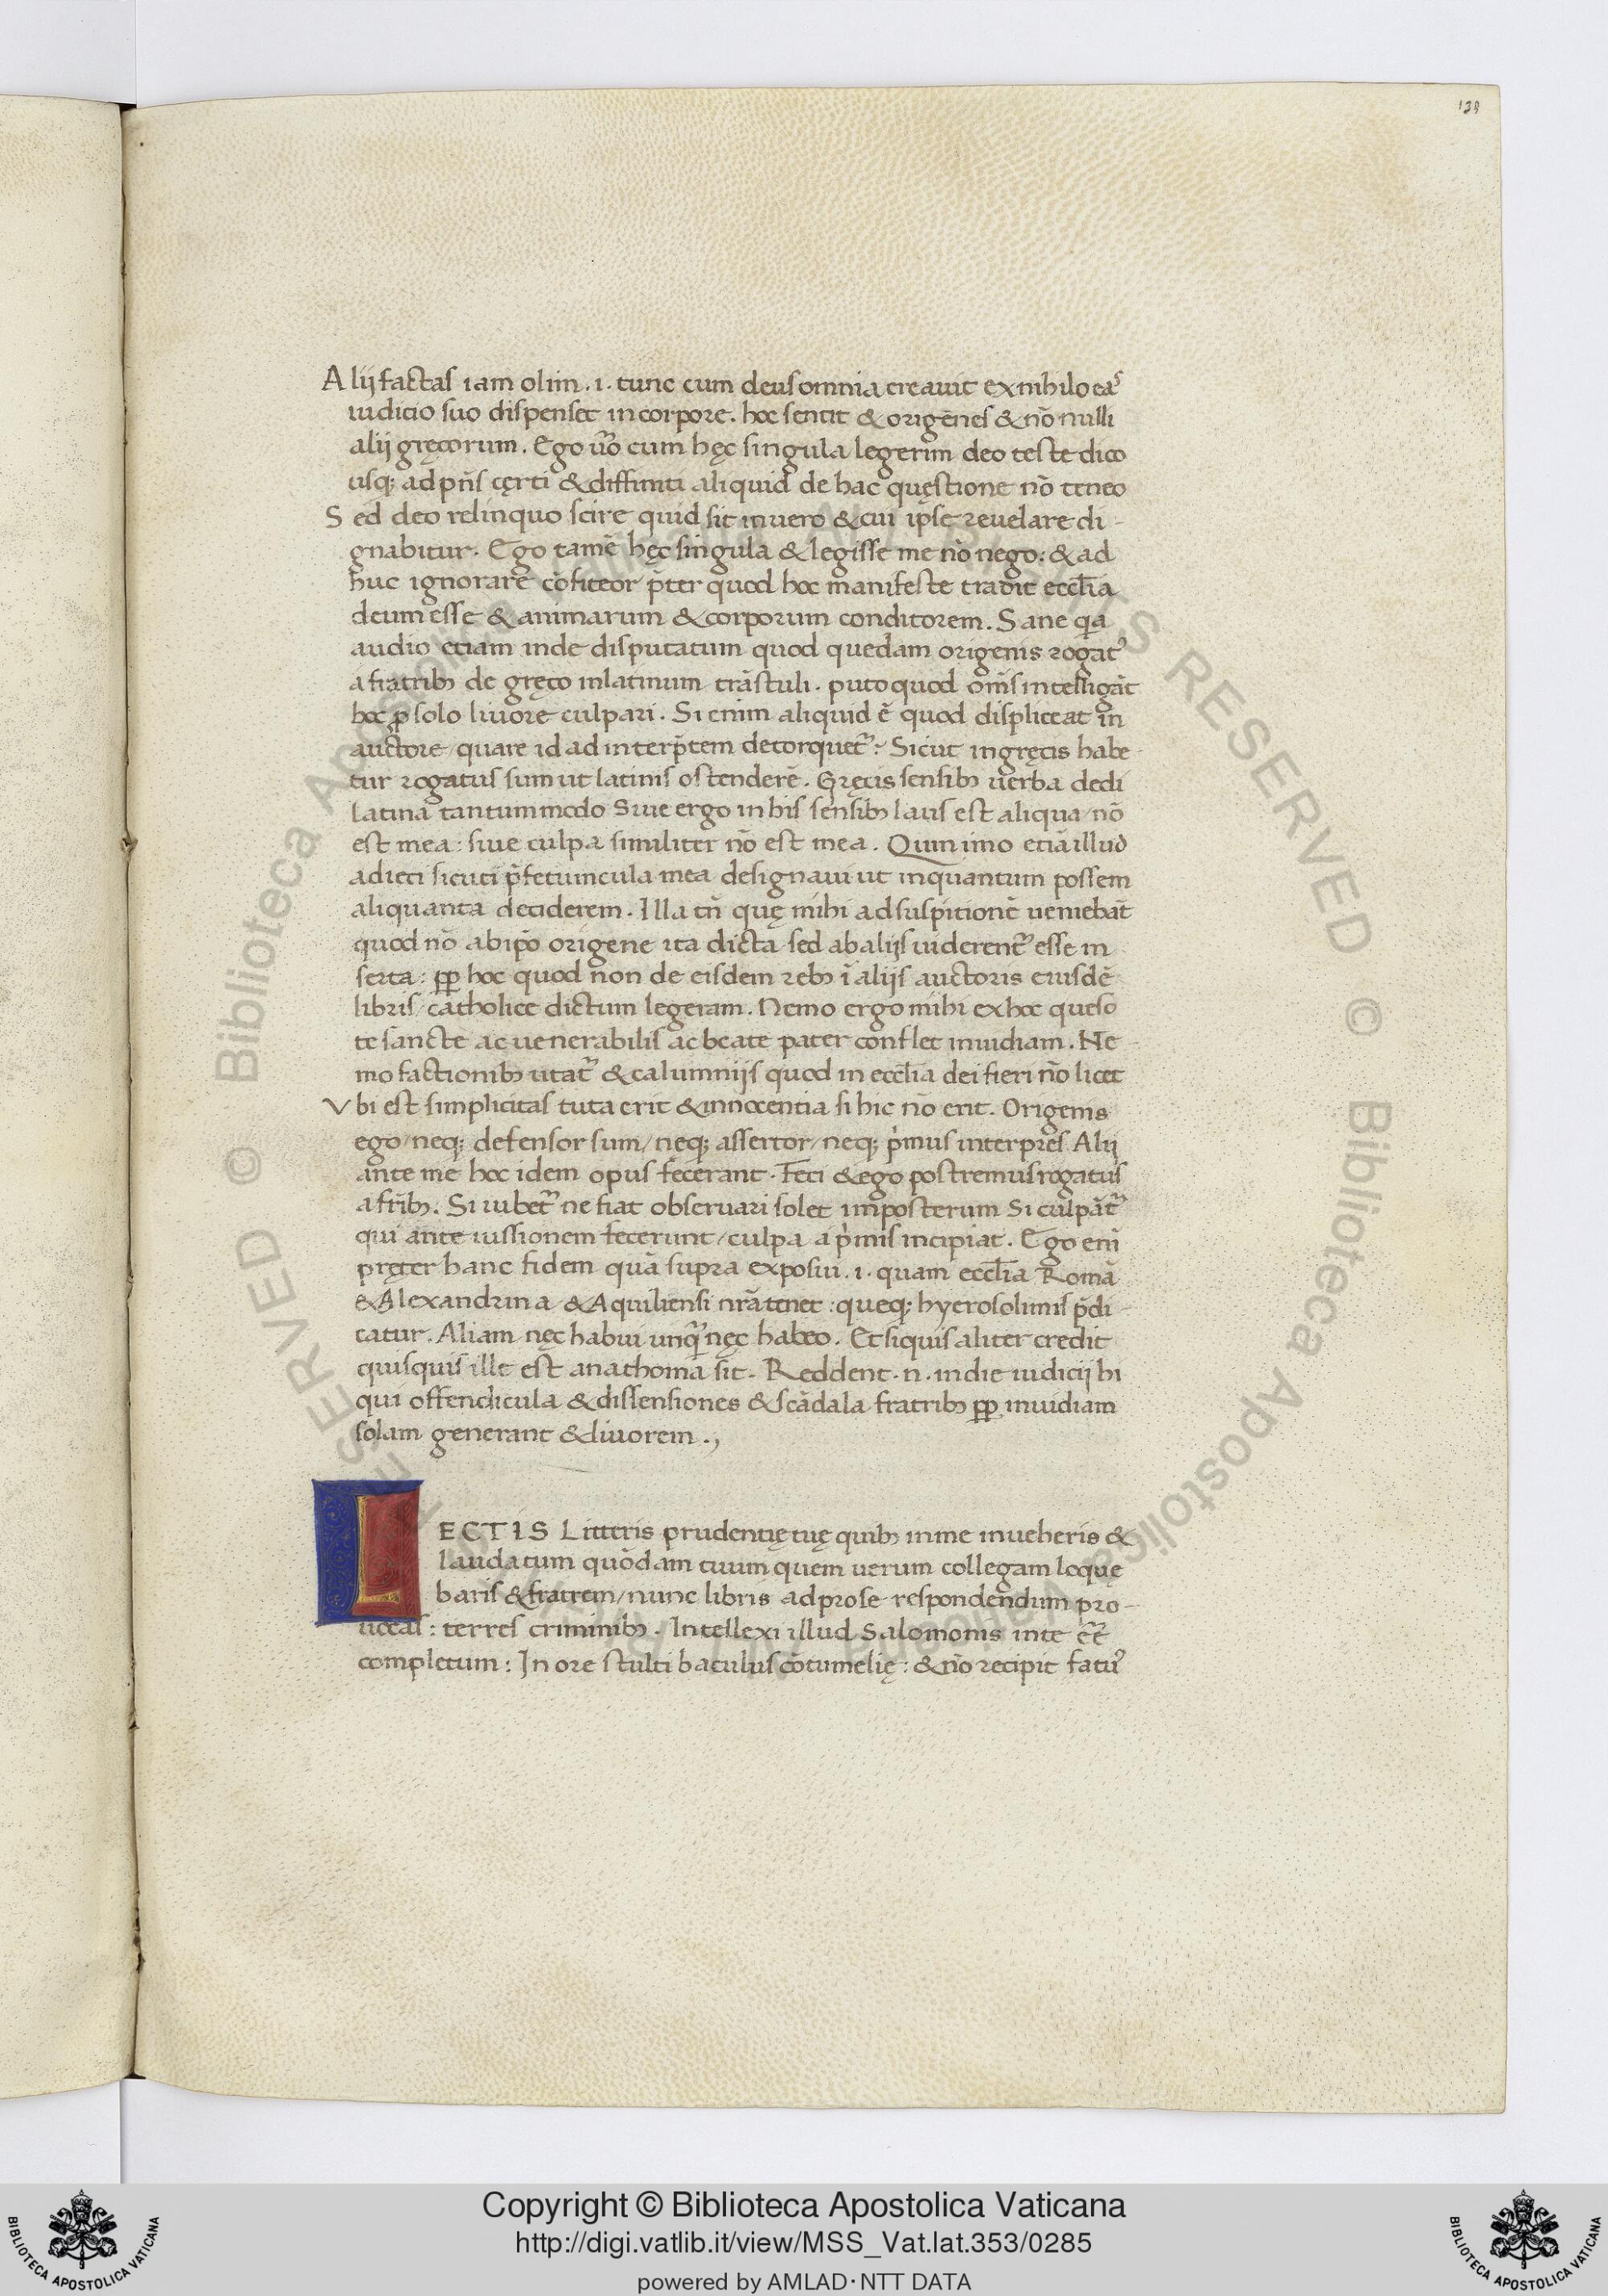 139
Alij factas iam olim .i. tunc cum deus omnia creavit ex nihilo eas̉
iudicio suo dispenset in corpore. hoc sentit & origenes & nō nulli
alij gręcorum. Ego ṽo cum hęc singula legerim deo teste dico
usq; ad pñs cęrti & diffiniti aliquid de hac quęstione nō teneo
Sed deo relinquo scire quid sit in vero & cui ipse revelare di-
gnabitur. Ego tamē hęc singula & legisse me nō nego: & ad
huc ignorare cōfiteor p̄ter quod hoc manifeste tradit eccl̄ia
deum esse & animarum & corporum conditorem. Sane q̄a
audio etiam inde disputatum quod quedam origenis rogat᾽
a fratrib; de gręco in latinum trāstuli. puto quod om̄s intelligāt
hoc p̲ solo livore culpari. Si enim aliquid ē quod displiceat in
auctore / quare id ad interp̄tem detorquet᾽? Sicut in gręcis habe-
tur rogatus sum ut latinis ostenderē. Gręcis sensib; verba dedi
latina tantummodo Sive ergo in his sensib; laus est aliqua / nō
est mea: sive culpa similiter nō est mea. Quin imo etiā illud
adieci sicuti p̄fetiuncula mea designavi ut inquantum possem
aliquanta deciderem. Illa tñ quę mihi ad suspitionē veniebāt
quod nō ab ip̄o origene ita dicta sed ab alijs viderent᾽ esse in
serta: p̲p̲ hoc quod non de eisdem reb; ī alijs auctoris eiusdē
libris / catholice dictum legeram. Nemo ergo mihi ex hoc queso
te sancte ac venerabilis ac beate pater conflet invidiam. Ne-
mo factionib; utat᾽ & calumnijs quod in eccl̄ia dei fieri nō licet
Vbi est simplicitas tuta erit & innocentia si hic nō erit. Origenis
ego / neq; defensor sum / neq; assertor / neq; p̓mus interpres Alij
ante me hoc idem opus fecerant. Feci & ego postremus rogatus
a frīb;. Si iubet᾽ ne fiat observari solet imposterum Si culpāt᾽
qui ante iussionem fecerunt / culpa a p̓mis incipiat. Ego eni᷉
pręter hanc fidem quā supra exposui .i. quam eccl̄ia Romā
& Alexandrina & Aquiliensi nr̄a tenet: queq; hyerosolimis p̄di-
catur. Aliam nęc habui unq̄ nęc habeo. Et siquis aliter credit
quisquis ille est anathoma sit. Reddent .n. in die iudicij hi
qui offendicula & dissensiones & scādala fratrib; p̲p̲ invidiam
solam generant & livorem.,
LECTIS Litteris prudentię tuę quib; in me inveheris &
laudatum quōdam tuum quem verum collegam loquę
baris & fratrem / nunc libris ad pro se respondendum pro-
uceas: terres criminib;. Intellexi illud Salomonis in te ēē
completum: In ore stulti baculus cōtumelię: & nō recipit fatu᾽
Copyright © Biblioteca Apostolica Vaticana
http://digi.vatlib.it/view/MSS_Vat.lat.353/0285
powered by AMLAD·NTT DATA
BIBLIOTECA APOSTOLICA VATICANA
BIBLIOTECA APOSTOLICA VATICANA